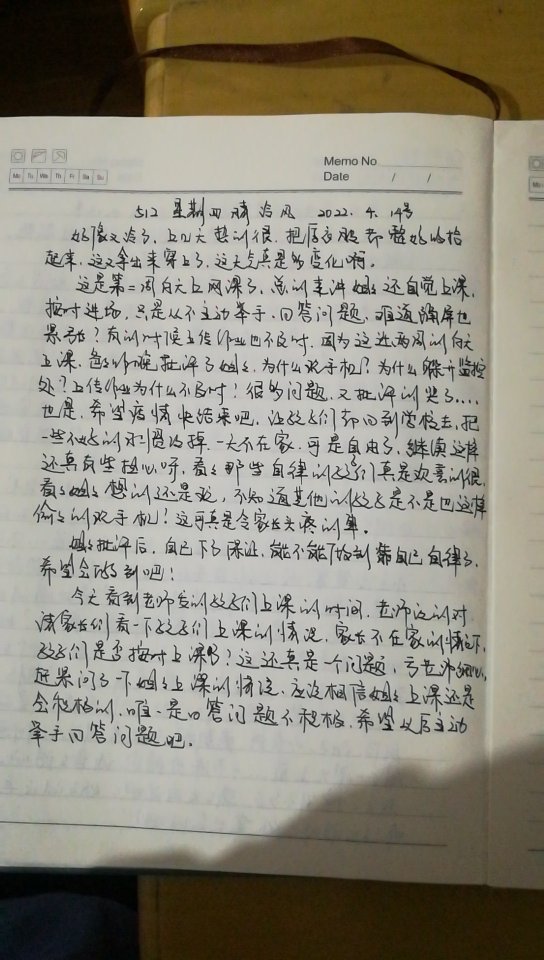 Memo No.
Date / /
Mo Tu We Th Fr Sa Su
512 星期四 晴 冷风 2022. 4. 14号
好像又冷了，上几天热的很，把厚衣服都整好的拾
起来，这又拿出来穿上了，这天气真是多变化啊。
这是第二周白天上网课了，总的来讲姐姐还自觉上课，
按时进场，只是从不主动举手，回答问题，难道隔屏也
害羞？有的时候上传作业也不及时，因为这近两周的白天
上课，爸爸昨晚批评了姐姐，为什么玩手机？为什么躲开监控
处？上传作业为什么不及时！很多问题，又批评的哭了....
也是，希望疫情快结束吧，让孩子们都回到学校去，把
一些不好的习惯改掉，一大不在家，可是自由了，继续这样
还真有些担心呀，看看那些自律的孩子们真是欢喜的很，
看看姐姐想的还是玩，不知道其他的孩子是不是也这样
偷偷的玩手机！这可真是令家长头疼的事。
姐姐批评后，自己下了保证，能不能做到靠自己自律了，
希望会做到吧！
今天看到老师发的孩子们上课的时间，老师说的对
让家长们看一下孩子们上课的情况，家长不在家的情况下，
孩子们是否按时上课了？这还真是一个问题，亏老师细心，
赶紧问了一下姐姐上课的情况，应该相信姐姐上课还是
会积极的，唯一是回答问题不积极，希望以后主动
举手回答问题吧。